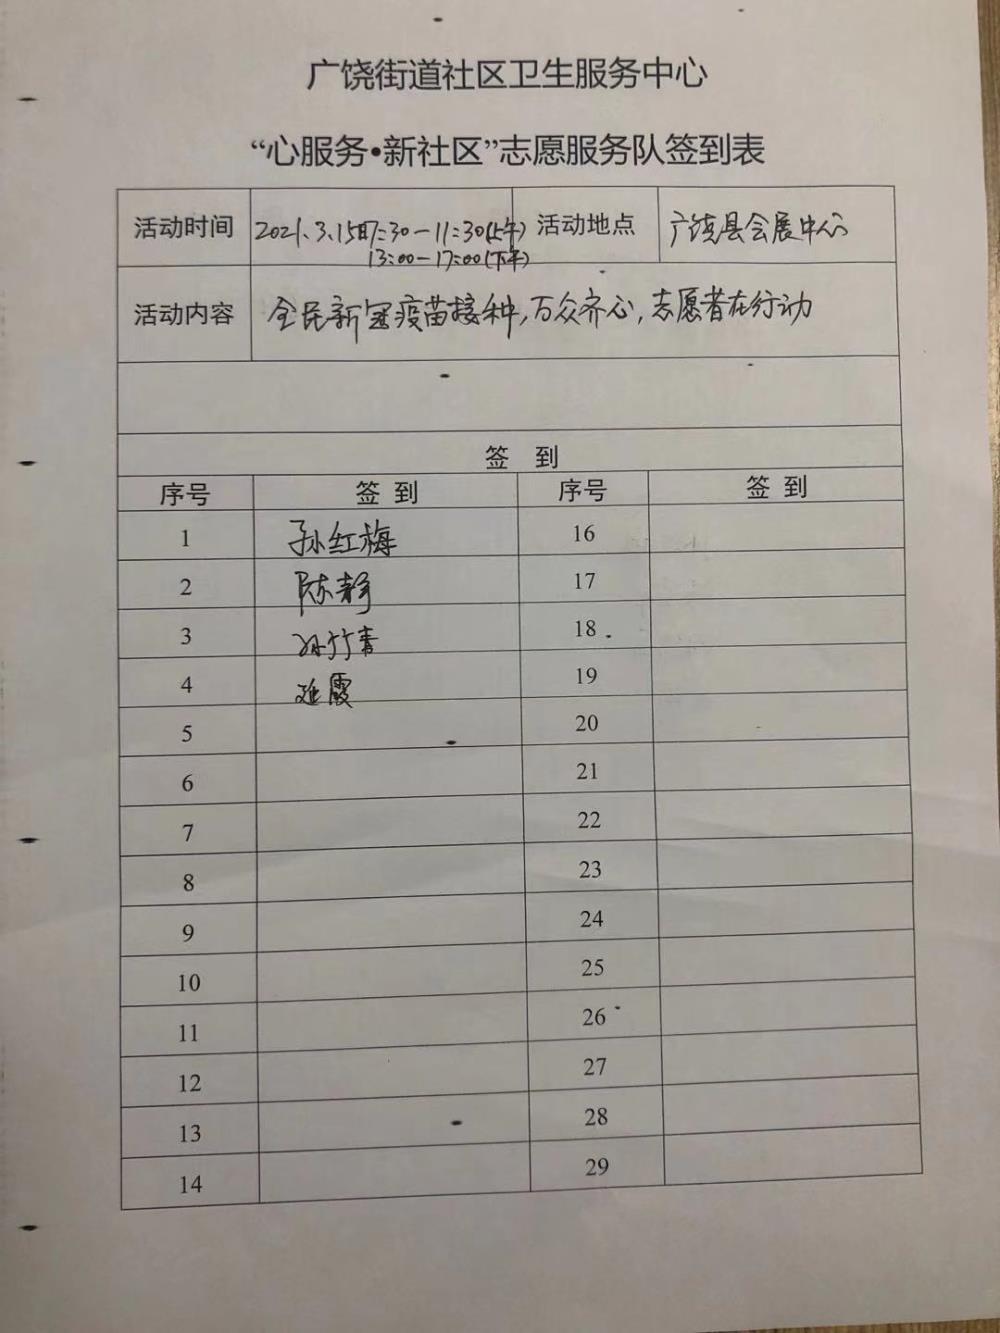 广饶街道社区卫生服务中心
“心服务•新社区”志愿服务队签到表
活动时间 2021.3.15日7:30-11:30(上午) 活动地点 广饶县会展中心
13:00-17:00(下午)
活动内容 全民新冠疫苗接种,万众齐心,志愿者在行动
签 到
序号 签到 序号 签到
1 孙红梅 16
2 陈静 17
3 孙竹青 18
4 延霞 19
5 20
6 21
7 22
8 23
9 24
10 25
11 26
12 27
13 28
14 29